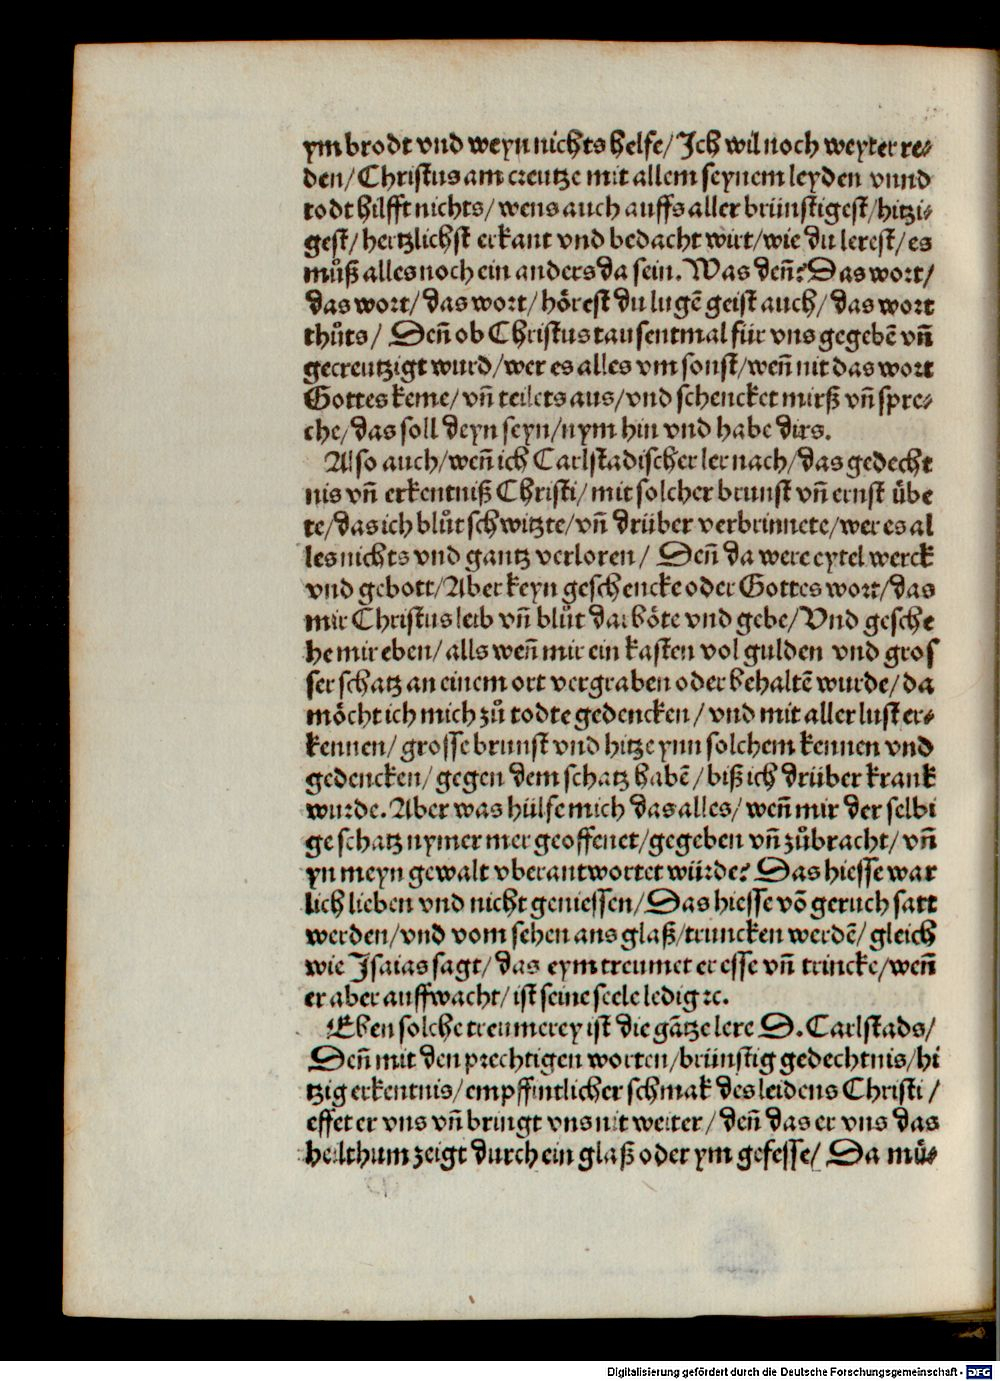 ym brodt vnd weyn nichts helfe/ Jch wil noch weyter re⸗
den/ Christus am creutze mit allem seynem leyden vnnd
todt hilfft nichts/ wens auch auffs aller brünstigest/ hitzi⸗
gest/ hertzlichst erkant vnd bedacht wirt/ wie du lerest/ es
můß alles noch ein anders da sein. Was deñ? Das wort/
das wort/ das wort/ hörest du lugẽ geist auch/ das wort
thůts/ Deñ ob Christus tausentmal für vns gegebẽ vñ
gecreutzigt wurd/ wer es alles vm sonst/ weñ nit das wort
Gottes keme/ vñ teilets aus/ vnd schencket mirß vñ spre⸗
che/ das soll deyn seyn/ nym hin vnd habe dirs.
Also auch/ weñ ich Carlstadischer ler nach/ das gedecht
nis vñ erkentniß Christi/ mit solcher brunst vñ ernst übe
te/ das ich blůt schwitzte/ vñ drüber verbrinnete/ wer es al
les nichts vnd gantz verloren/ Deñ da were eytel werck
vnd gebott/ Aber keyn geschencke oder Gottes wort/ das
mir Christus leib vñ blůt darböte vnd gebe/ Vnd gesche
he mir eben/ alls weñ mir ein kasten vol gulden vnd gros
ser schatz an einem ort vergraben oder behaltẽ wurde/ da
möcht ich mich zů todte gedencken/ vnd mit aller lust er⸗
kennen/ grosse brunst vnd hitze ynn solchem kennen vnd
gedencken/ gegen dem schatz habẽ/ biß ich drüber krank
wurde. Aber was hülfe mich das alles/ weñ mir der selbi
ge schatz nymer mer geoffenet/ gegeben vñ zůbracht/ vñ
yn meyn gewalt vberantwortet würde? Das hiesse war
lich lieben vnd nicht geniessen/ Das hiesse võ geruch satt
werden/ vnd vom sehen ans glaß/ truncken werdẽ/ gleich
wie Jsaias sagt/ das eym treumet er esse vñ trincke/ weñ
er aber auffwacht/ ist seine seele ledig ꝛc.
Eben solche treumerey ist die gãtze lere D. Carlstads/
Deñ mit den prechtigen worten/ brünstig gedechtnis/ hi
tzig erkentnis/ empffintlicher schmak des leidens Christi/
effet er vns vñ bringt vns nit weiter/ deñ das er vns das
heilthum zeigt durch ein glaß oder ym gefesse/ Da mü⸗
Digitalisierung gefördert durch die Deutsche Forschungsgemeinschaft - DFG